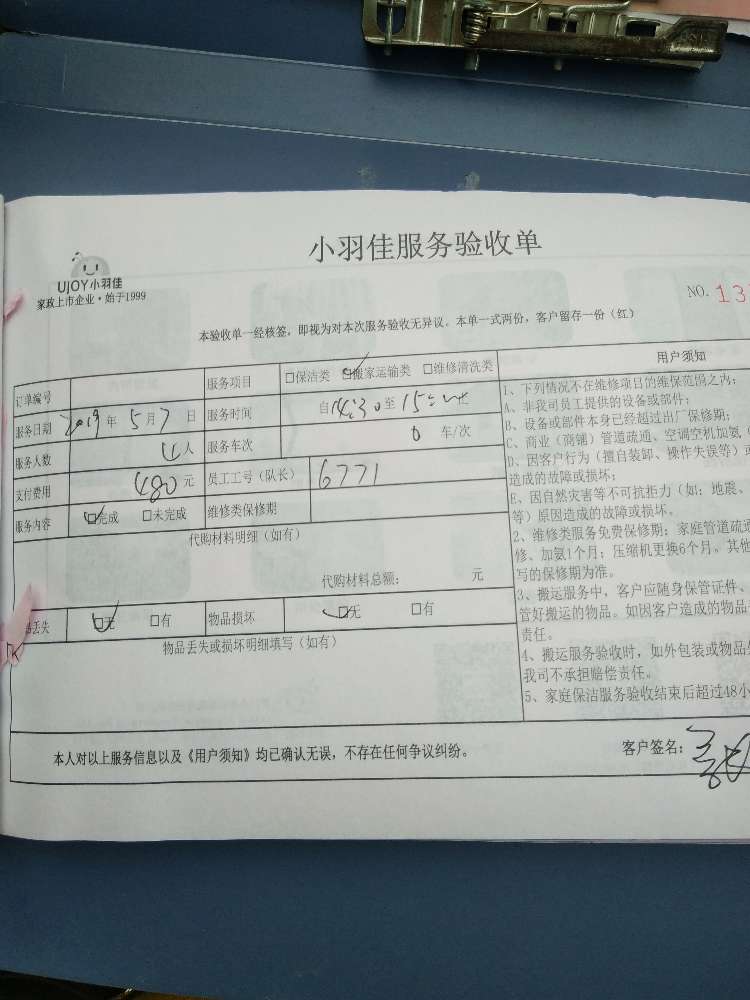 小羽佳服务验收单
UJOY小羽佳
家政上市企业·始于1999
NO. 13
本验收单一经核签，即视为对本次服务验收无异议。本单一式两份，客户留存一份（红）
订单编号 服务项目 □保洁类 □搬家运输类 □维修清洗类
服务日期 2019 年 5 月 7 日 服务时间 自 14:30 至 15:
服务人数 4 人 服务车次 0 车/次
支付费用 480 元 员工工号（队长） 6771
服务内容 □完成 □未完成 维修类保修期
代购材料明细（如有）
代购材料总额： 元
丢失 □无 □有 物品损坏 □无 □有
物品丢失或损坏明细填写（如有）
用户须知
1、下列情况不在维修项目的维保范围之内：
A、非我司员工提供的设备或部件；
B、设备或部件本身已经超过出厂保修期；
C、商业（商铺）管道疏通、空调空机加氨（
D、因客户行为（擅自装卸、操作失误等）或
造成的故障或损坏；
E、因自然灾害等不可抗拒力（如：地震、
等）原因造成的故障或损坏。
2、维修类服务免费保修期：家庭管道疏通
修、加氨1个月；压缩机更换6个月。其他
写的保修期为准。
3、搬运服务中，客户应随身保管证件、
管好搬运的物品。如因客户造成的物品
责任。
4、搬运服务验收时，如外包装或物品
我司不承担赔偿责任。
5、家庭保洁服务验收结束后超过48小
本人对以上服务信息以及《用户须知》均已确认无误，不存在任何争议纠纷。
客户签名：